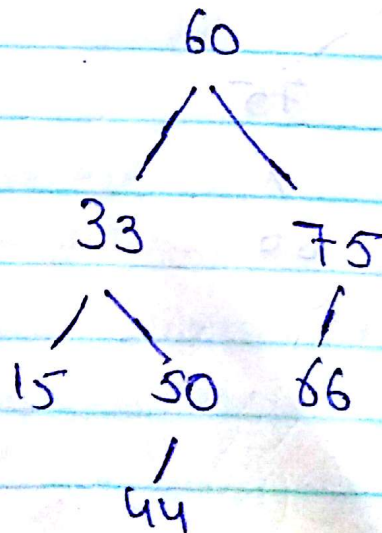 60
33 75
15 50 66
44